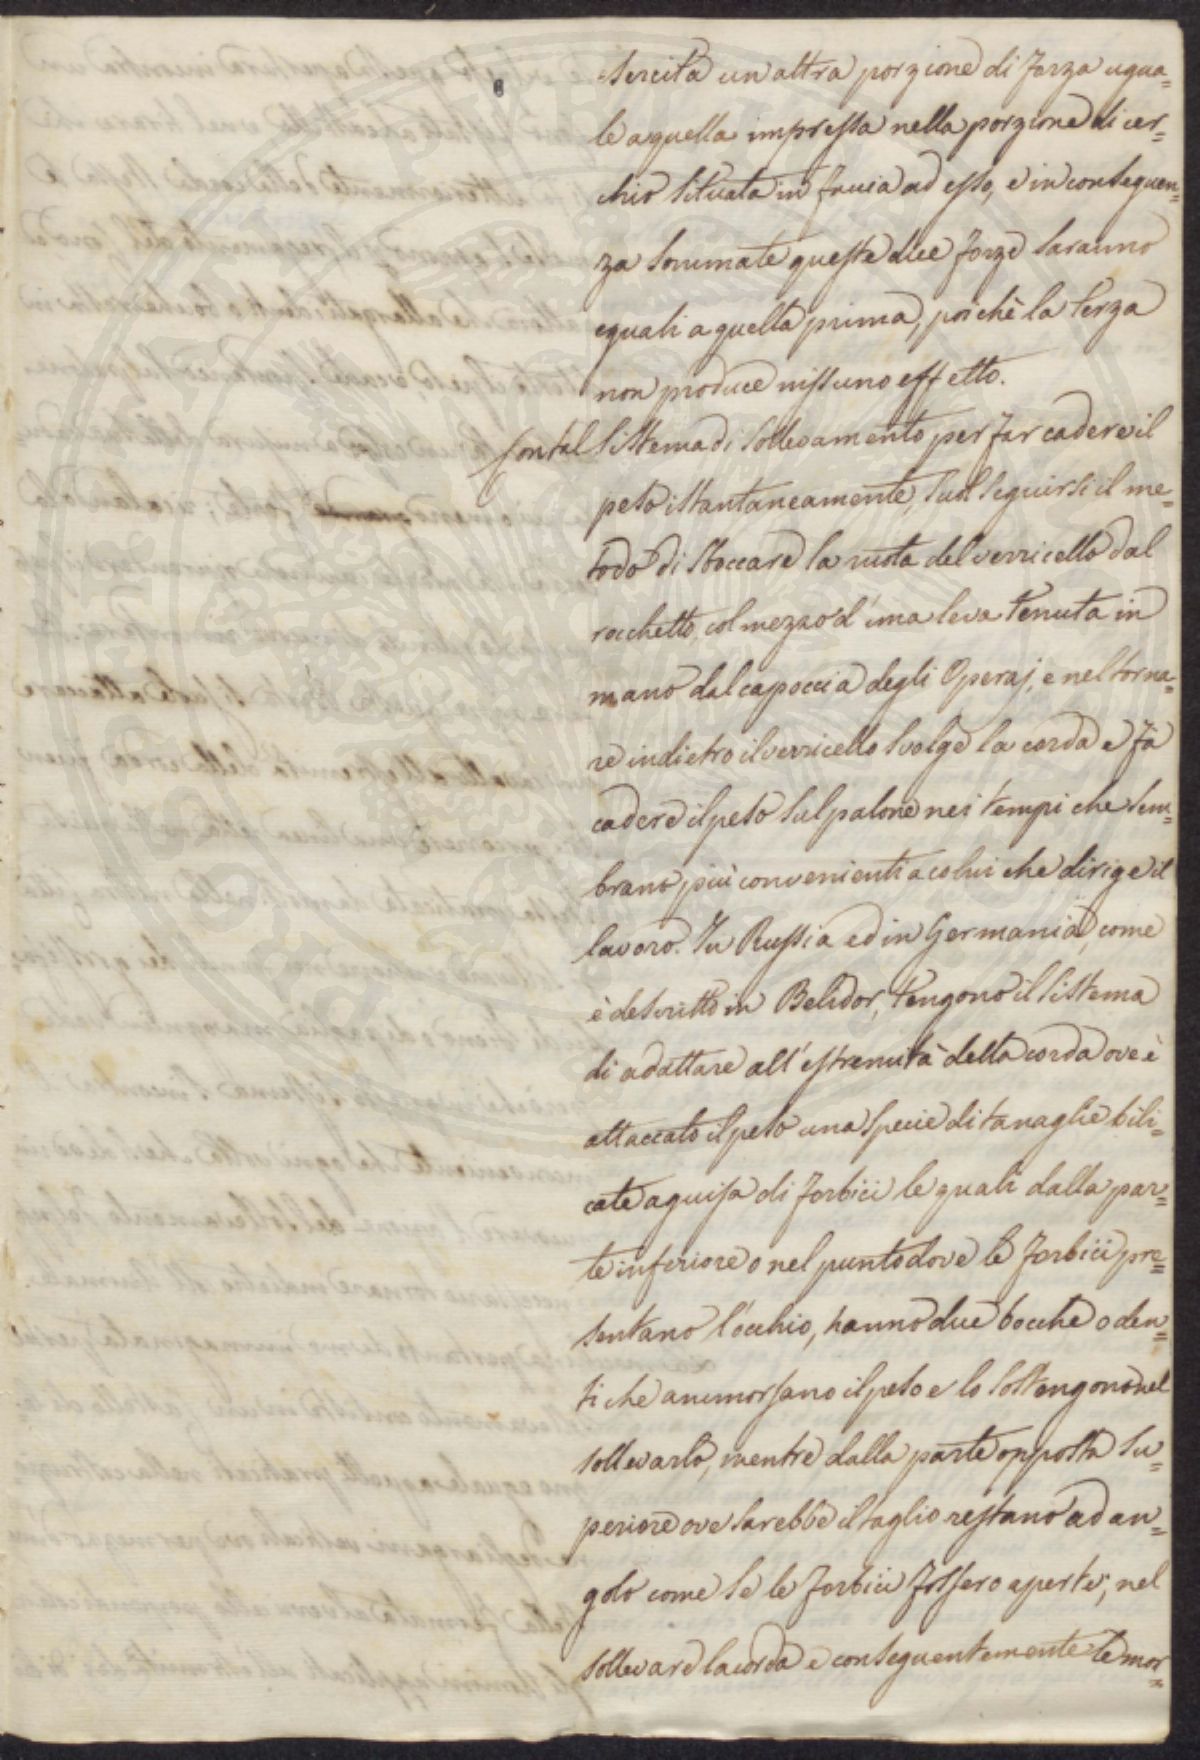 sercita un altra porzione di forza ugua=
le a quella impressa nella porzione di cer=
chio situata in faccia ad esso, e in conseguen=
za sommate queste due forze saranno
eguali a quella prima, poichè la terza
non produce nissuno effetto.
Con tal sistema di sollevamento per far cadere il
peso istantaneamente, suol seguirsi il me=
todo di sboccare la ruota del verricello dal
rocchetto, col mezzo d'una leva tenuta in
mano dal capoccia degli Operaj, e nel torna=
re indietro il verricello svolge la corda e fà
cadere il peso sul palone nei tempi che sem=
brano più convenienti a colui che dirige il
lavoro. In Russia ed in Germania, come
è descritto in Belidor, tengono il sistema
di adattare all'estremità della corda ove è
attaccato il peso una specie di tanaglie bili=
cate a guisa di forbici le quali dalla par=
te inferiore o nel punto dove le forbici pre=
sentano l'occhio, hanno due bocche o den=
ti che ammorsano il peso e lo sostengono nel
sollevarlo, mentre dalla parte opposta su=
periore ove sarebbe il taglio restano ad an=
golo come se le forbici fossero aperte; nel
sollevare la corda e conseguentemente le mor=